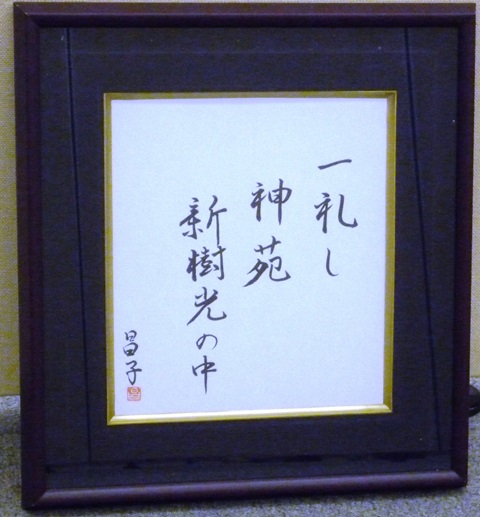 一礼し
神苑
新樹光の中
昌子